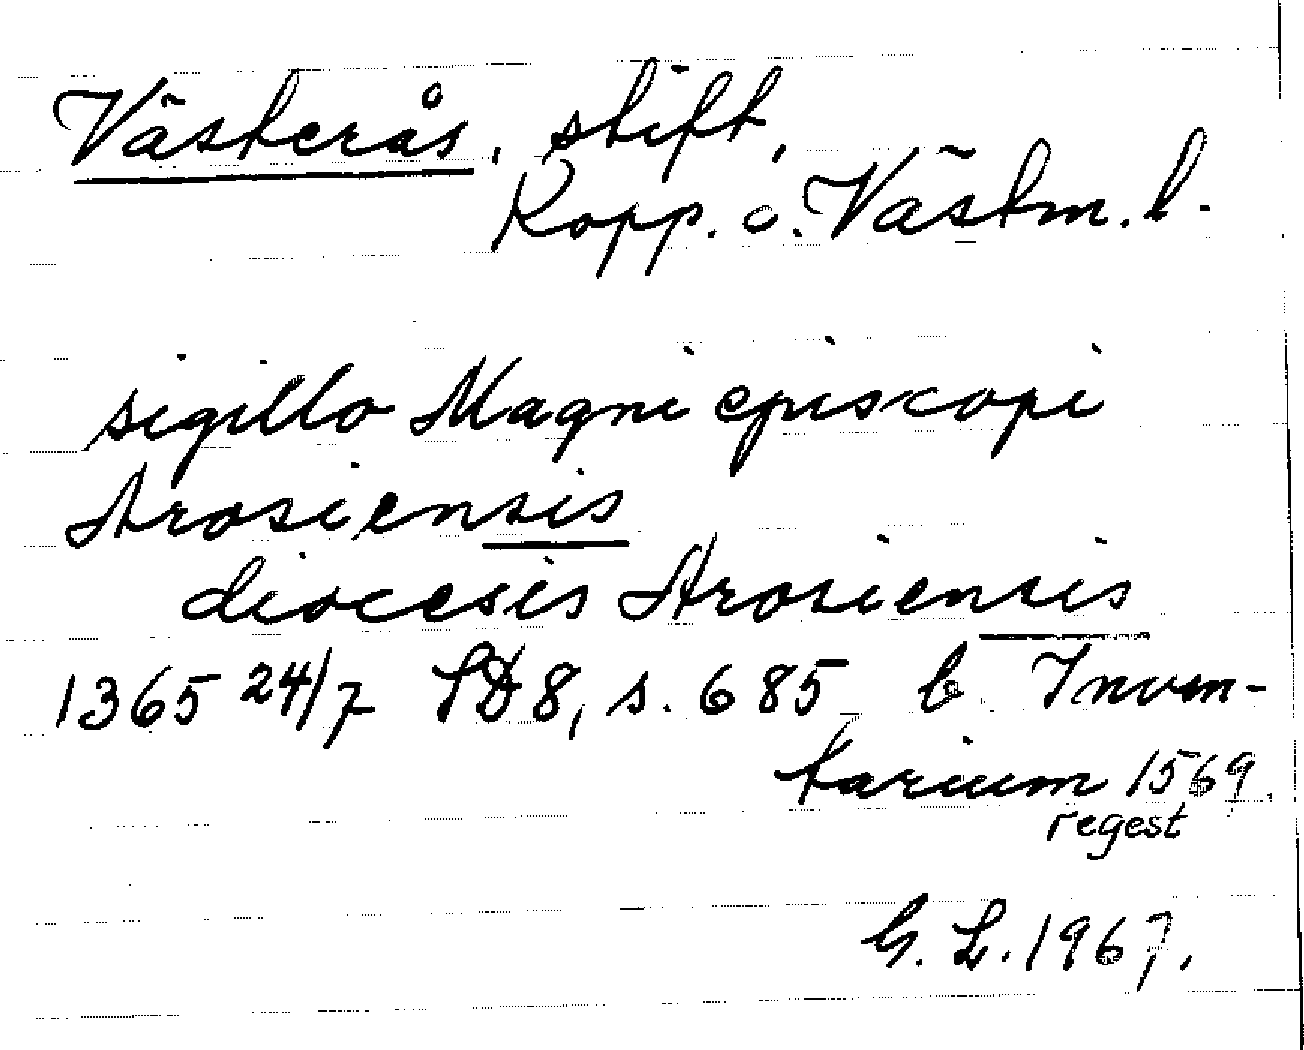 Västerås, stift,
Kopp. o. Västm. l.
sigillo Magni episcopi
Arosiensis
diocesis Arosiensis
1365 24/7 SD 8, s. 685 b Inven-
tarium 1569.
regest
G. L. 1967.